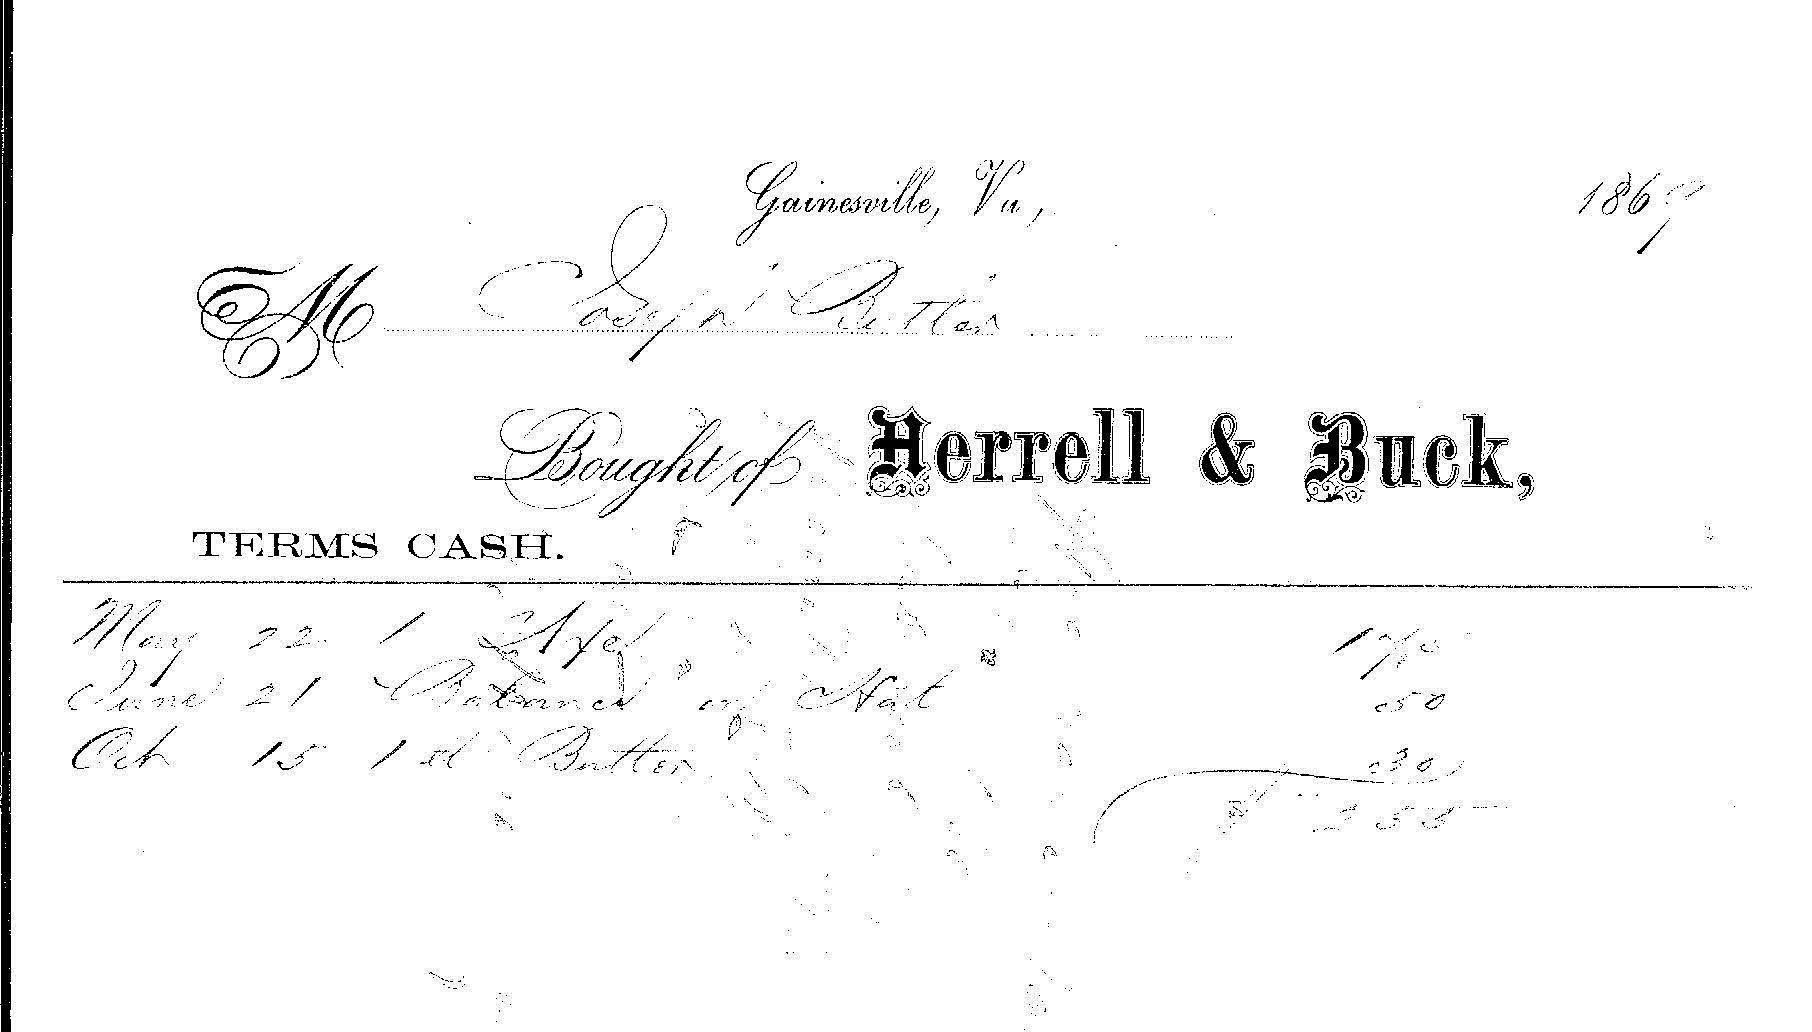 Gainesville, Va, 1869
M Joseph Butler
Bought of Herrell & Buck,
TERMS CASH.
May 22 1 Axe
June 21 Balance on Hat 50
Oct 15 1 lb Butter 30
$